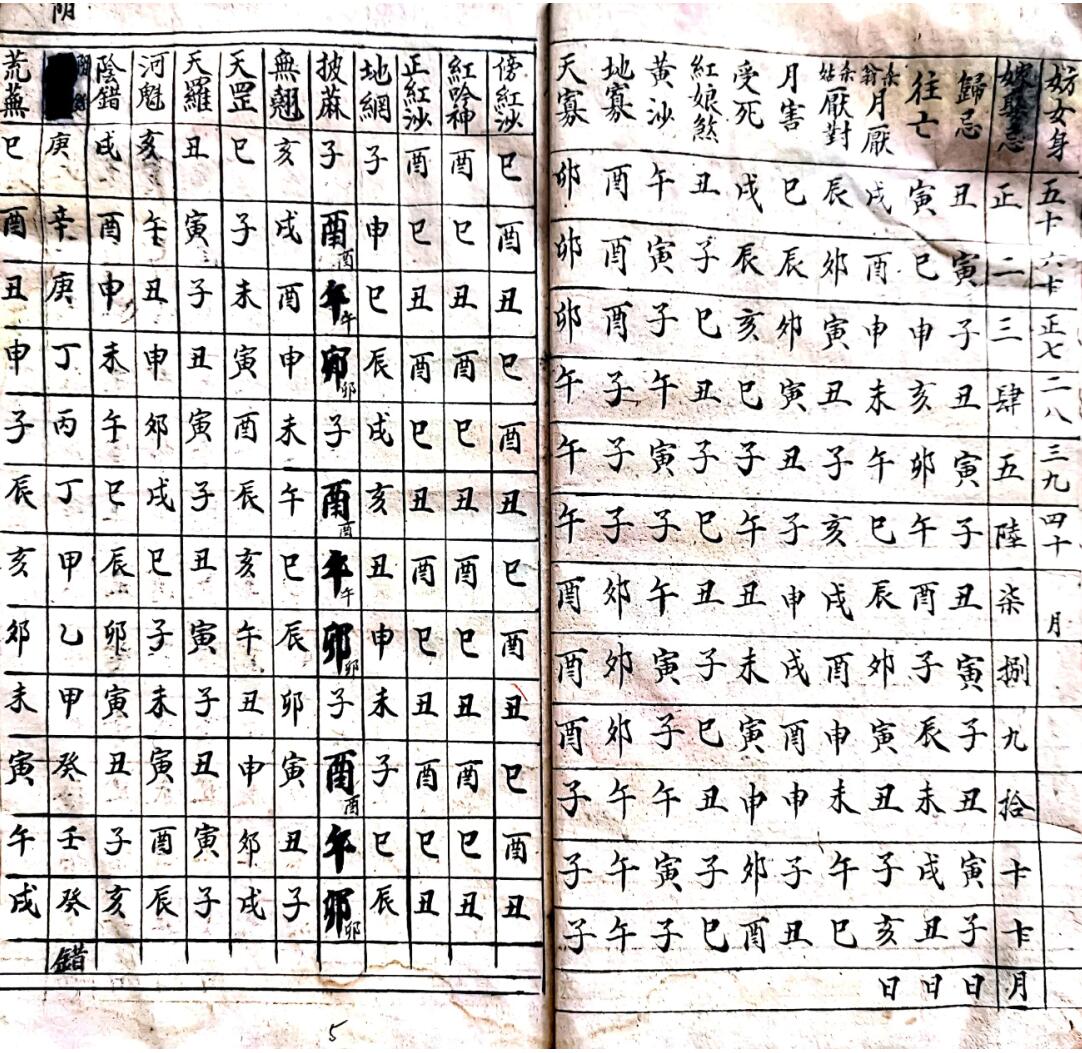 妨女身 五卡 六卡 正七 二八 三九 四十 月
嫁娶忌 正 二 三 肆 五 陸 柒 捌 九 拾 卡 卡 月
歸忌 丑 寅 子 丑 寅 子 丑 寅 子 丑 寅 子 日
往亡 寅 巳 申 亥 卯 午 酉 子 辰 未 戌 丑 日
翁月厭 戌 酉 申 未 午 巳 辰 卯 寅 丑 子 亥 日
姑厭對 辰 卯 寅 丑 子 亥 戌 酉 申 未 午 巳
月害 巳 辰 卯 寅 丑 子 申 戌 酉 申 子 丑
受死 戌 辰 亥 巳 子 午 丑 未 寅 申 卯 酉
紅娘煞 丑 子 巳 丑 子 巳 丑 子 巳 丑 子 巳
黃沙 午 寅 子 午 寅 子 午 寅 子 午 寅 子
地寡 酉 酉 酉 子 子 子 卯 卯 卯 午 午 午
天寡 卯 卯 卯 午 午 午 酉 酉 酉 子 子 子
傍紅沙 巳 酉 丑 巳 酉 丑 巳 酉 丑 巳 酉 丑
紅吟神 酉 巳 丑 酉 巳 丑 酉 巳 丑 酉 巳 丑
正紅沙 酉 巳 丑 酉 巳 丑 酉 巳 丑 酉 巳 丑
地網 子 申 巳 辰 戌 亥 丑 申 未 子 巳 辰
披蔴 子 酉酉 午午 卯卯 子 酉酉 午午 卯卯 子 酉酉 午 卯卯
無翹 亥 戌 酉 申 未 午 巳 辰 卯 寅 丑 子
天罡 巳 子 未 寅 酉 辰 亥 午 丑 申 卯 戌
天羅 丑 寅 子 丑 寅 子 丑 寅 子 丑 寅 子
河魁 亥 午 丑 申 卯 戌 巳 子 未 寅 酉 辰
陰錯 戌 酉 申 未 午 巳 辰 卯 寅 丑 子 亥
庚 辛 庚 丁 丙 丁 甲 乙 甲 癸 壬 癸 錯
荒蕪 巳 酉 丑 申 子 辰 亥 卯 未 寅 午 戌
5